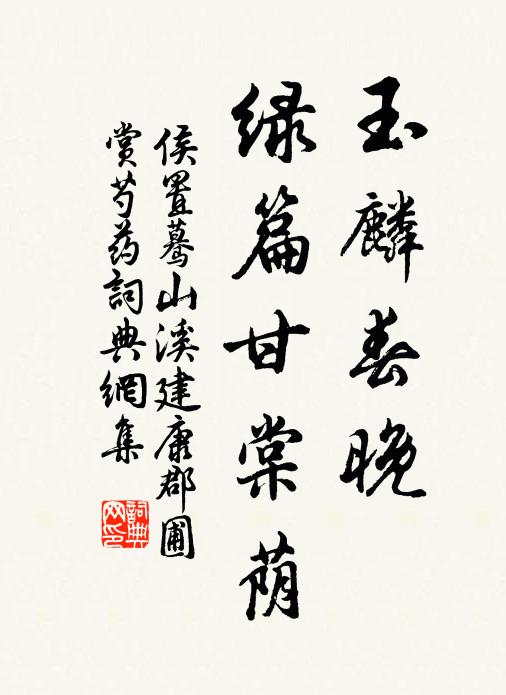 玉麟春晚
绿篇甘棠荫
侯置蓦山溪建康郡圃
赏芍药詞典網集
詞典网印